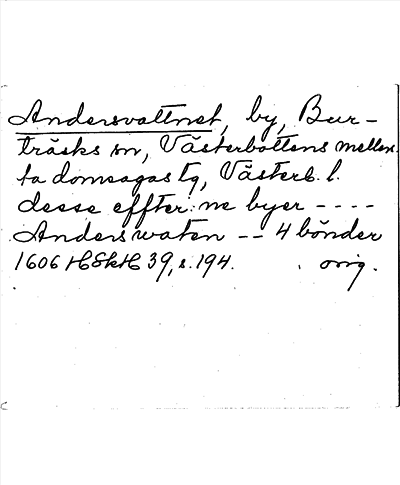 Andersvattnet, by, Bur-
träsks sn, Västerbottens mellers-
ta domsagas tg, Västerb. l.
desse effter:ne byer ----
Anderswaten -- 4 bönder
1606 HSkH 39, s. 194. orig.